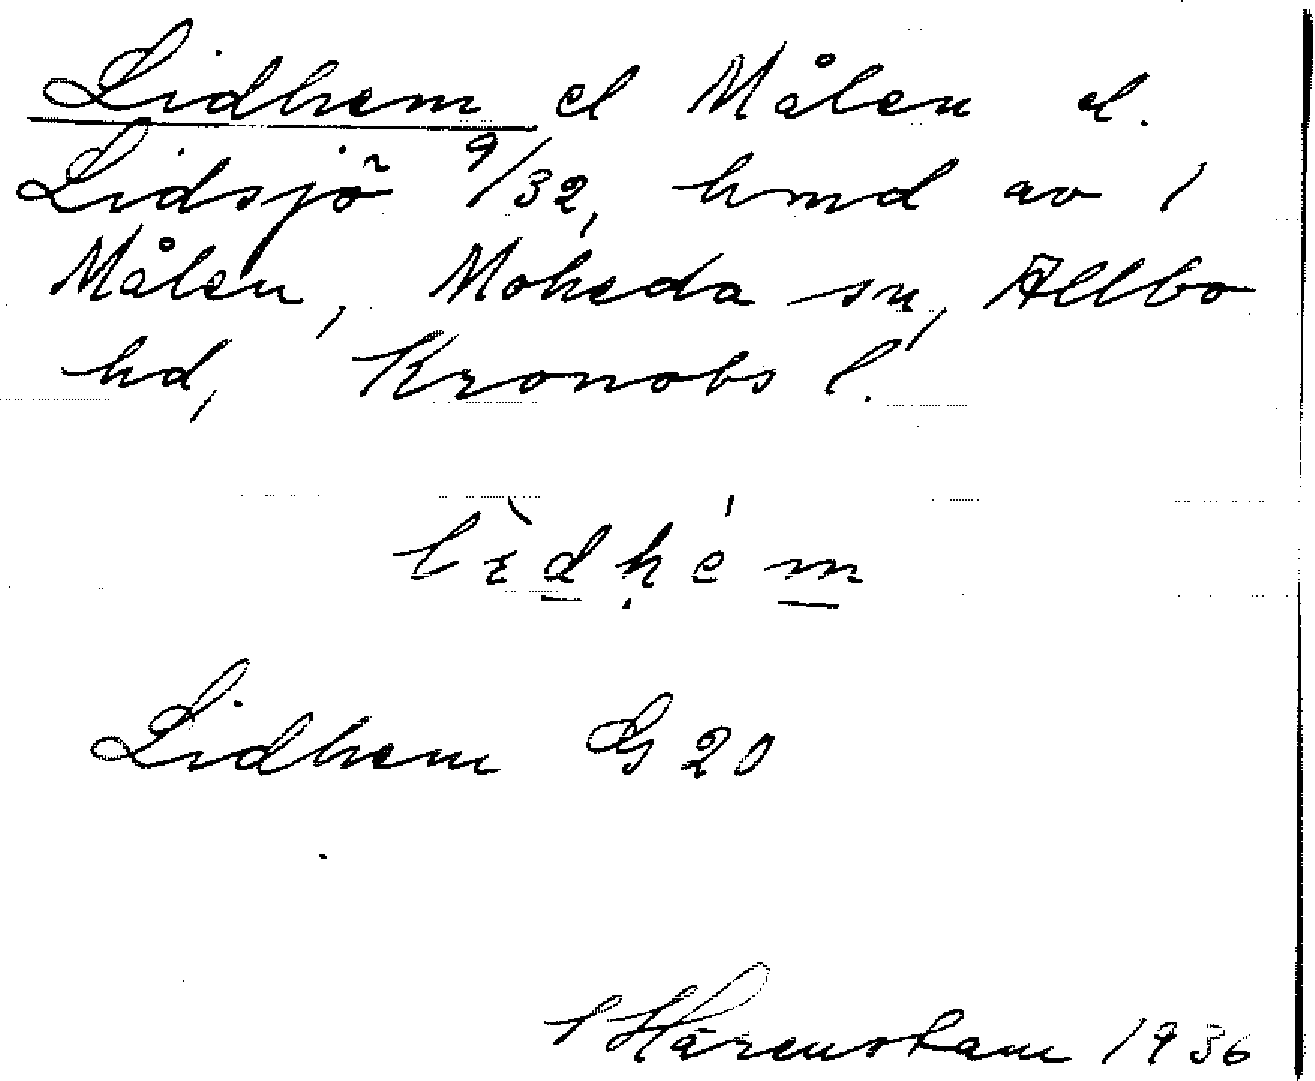 Lidhem el Målen el.
Lidsjö 9/32, hmd av 1
Målen, Moheda sn, Allbo
hd, Kronobs l.
lìdhém
Lidhem G 20
Härenstam 1936